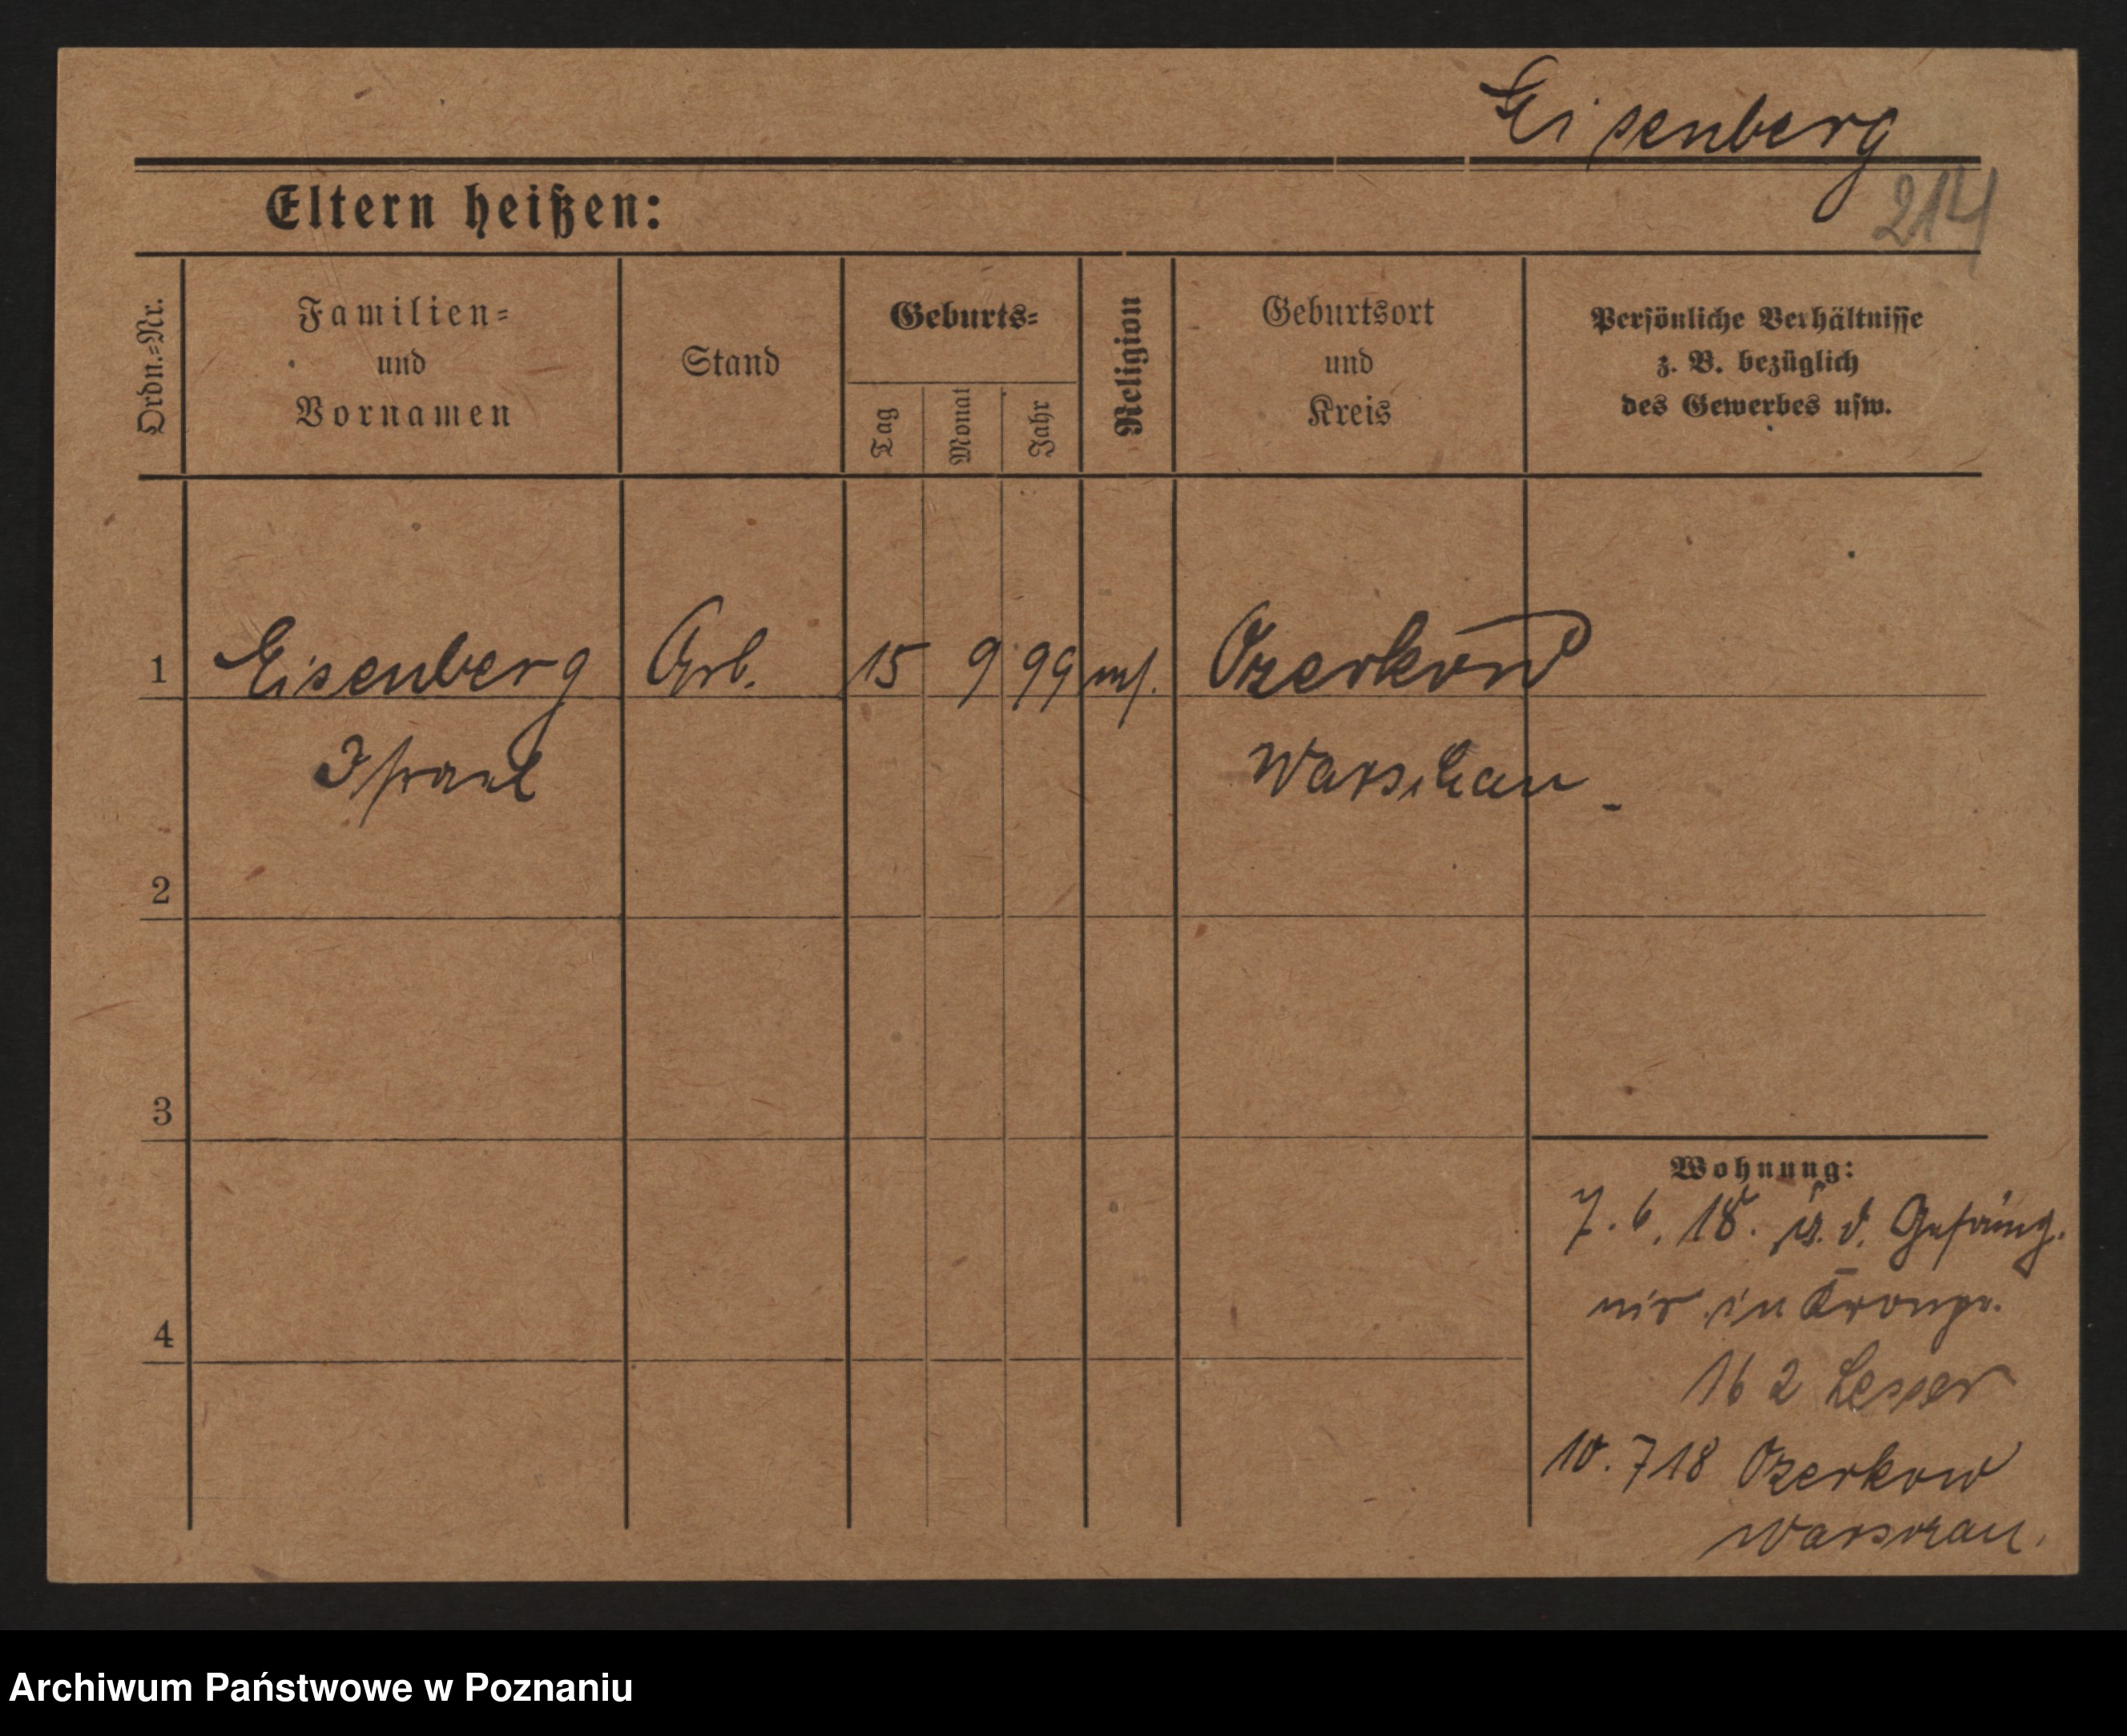 Eisenberg
214
Eltern heißen:
Ordn.=Nr.
Familien=
und
Vornamen
Stand
Geburts=
Tag
Monat
Jahr
Religion
Geburtsort
und
Kreis
Persönliche Verhältnisse
z. B. bezüglich
des Gewerbes usw.
1 Eisenberg Arb. 15 9 99 mos. Ozerkow
Israel Warschau
2
3
4
Wohnung:
7. 6. 18. d. Gefäng.
nis in
162 Lesser
10. 7 18 Ozerkow
Warschau.
Archiwum Państwowe w Poznaniu